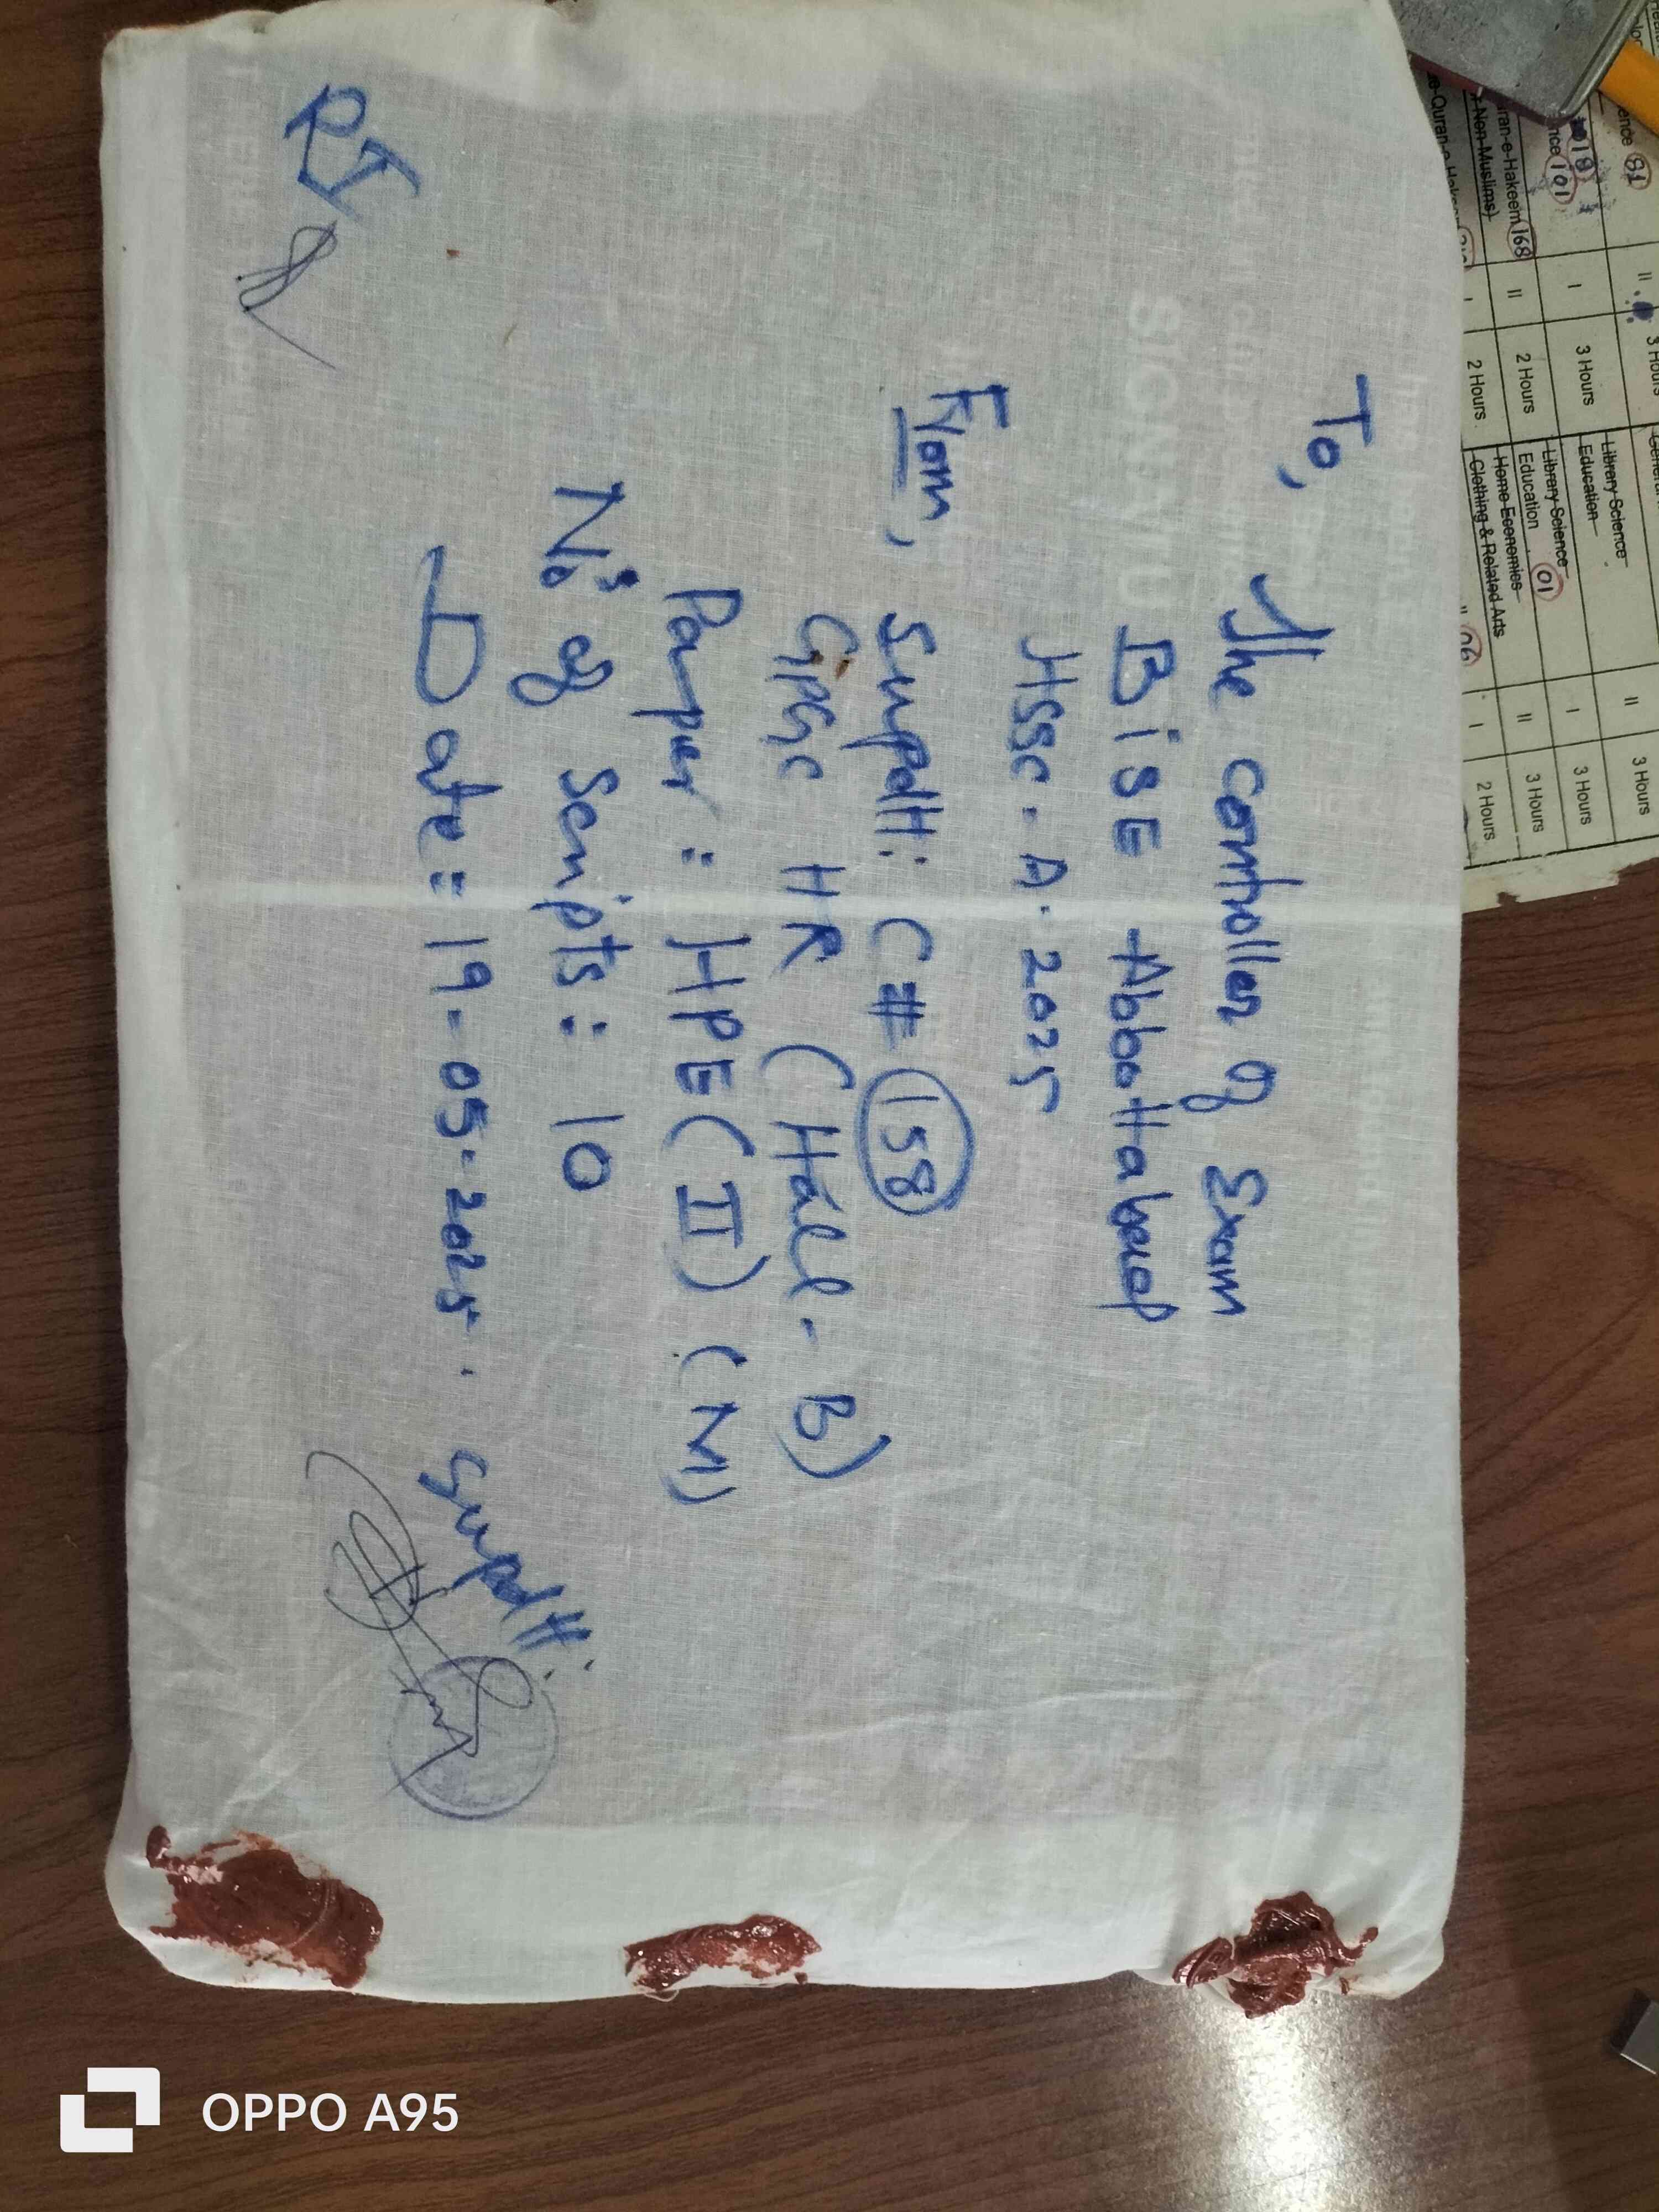 To,
The Controller of Exam
BISE Abbottabad
HSSC-A-2025
From,
Supdtt: C# 158
GPGC HR (Hall-B)
Paper: HPE(II) (M)
No's of Scripts: 10
Date: 19-05-2025.
Supdtt:
RI
ence 81
II
3 Hours
Library Science
II
3 Hours
18
nce 101
I
3 Hours
Education
I
3 Hours
ran-e-Hakeem 168
II
2 Hours
Library Science 01
Education
II
3 Hours
Non-Muslims)
I
2 Hours
Home Economics
Clothing & Related Arts
" 06
I
2 Hours
OPPO A95